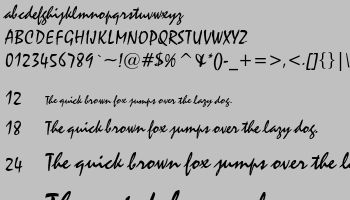 abcdefghijklmnopqrstuvwxyz
ABCDEFGHIJKLMNOPQRSTUVWXYZ
0123456789`~!@#$%^&*()-_+=>,<.[]{}|\
12 The quick brown fox jumps over the lazy dog.
18 The quick brown fox jumps over the lazy dog.
24 The quick brown fox jumps over the la